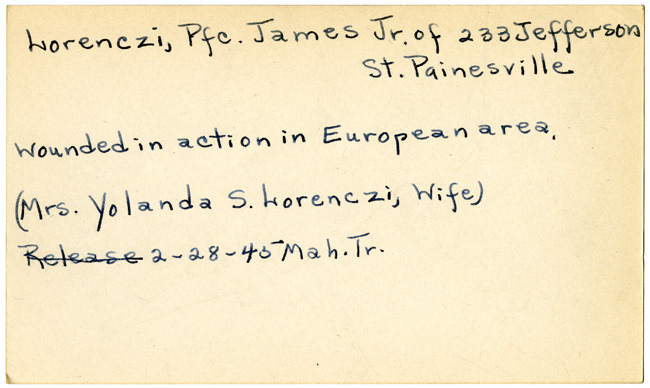 Lorenczi, Pfc. James Jr. of 233 Jefferson
St. Painesville
Wounded in action in European area.
(Mrs. Yolanda S. Lorenczi, Wife)
Release 2-28-45 Mah. Tr.